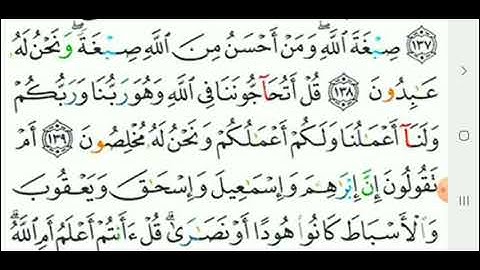 ١٣٧ صِبْغَةَ ٱللَّهِ ۖ وَمَنْ أَحْسَنُ مِنَ ٱللَّهِ صِبْغَةً ۖ وَنَحْنُ لَهُۥ
عَـٰبِدُونَ ١٣٨ قُلْ أَتُحَآجُّونَنَا فِى ٱللَّهِ وَهُوَ رَبُّنَا وَرَبُّكُمْ
وَلَنَآ أَعْمَـٰلُنَا وَلَكُمْ أَعْمَـٰلُكُمْ وَنَحْنُ لَهُۥ مُخْلِصُونَ ١٣٩ أَمْ
تَقُولُونَ إِنَّ إِبْرَٰهِـۧمَ وَإِسْمَـٰعِيلَ وَإِسْحَـٰقَ وَيَعْقُوبَ
وَٱلْأَسْبَاطَ كَانُوا۟ هُودًا أَوْ نَصَـٰرَىٰ ۗ قُلْ ءَأَنتُمْ أَعْلَمُ أَمِ ٱللَّهُ ۗ